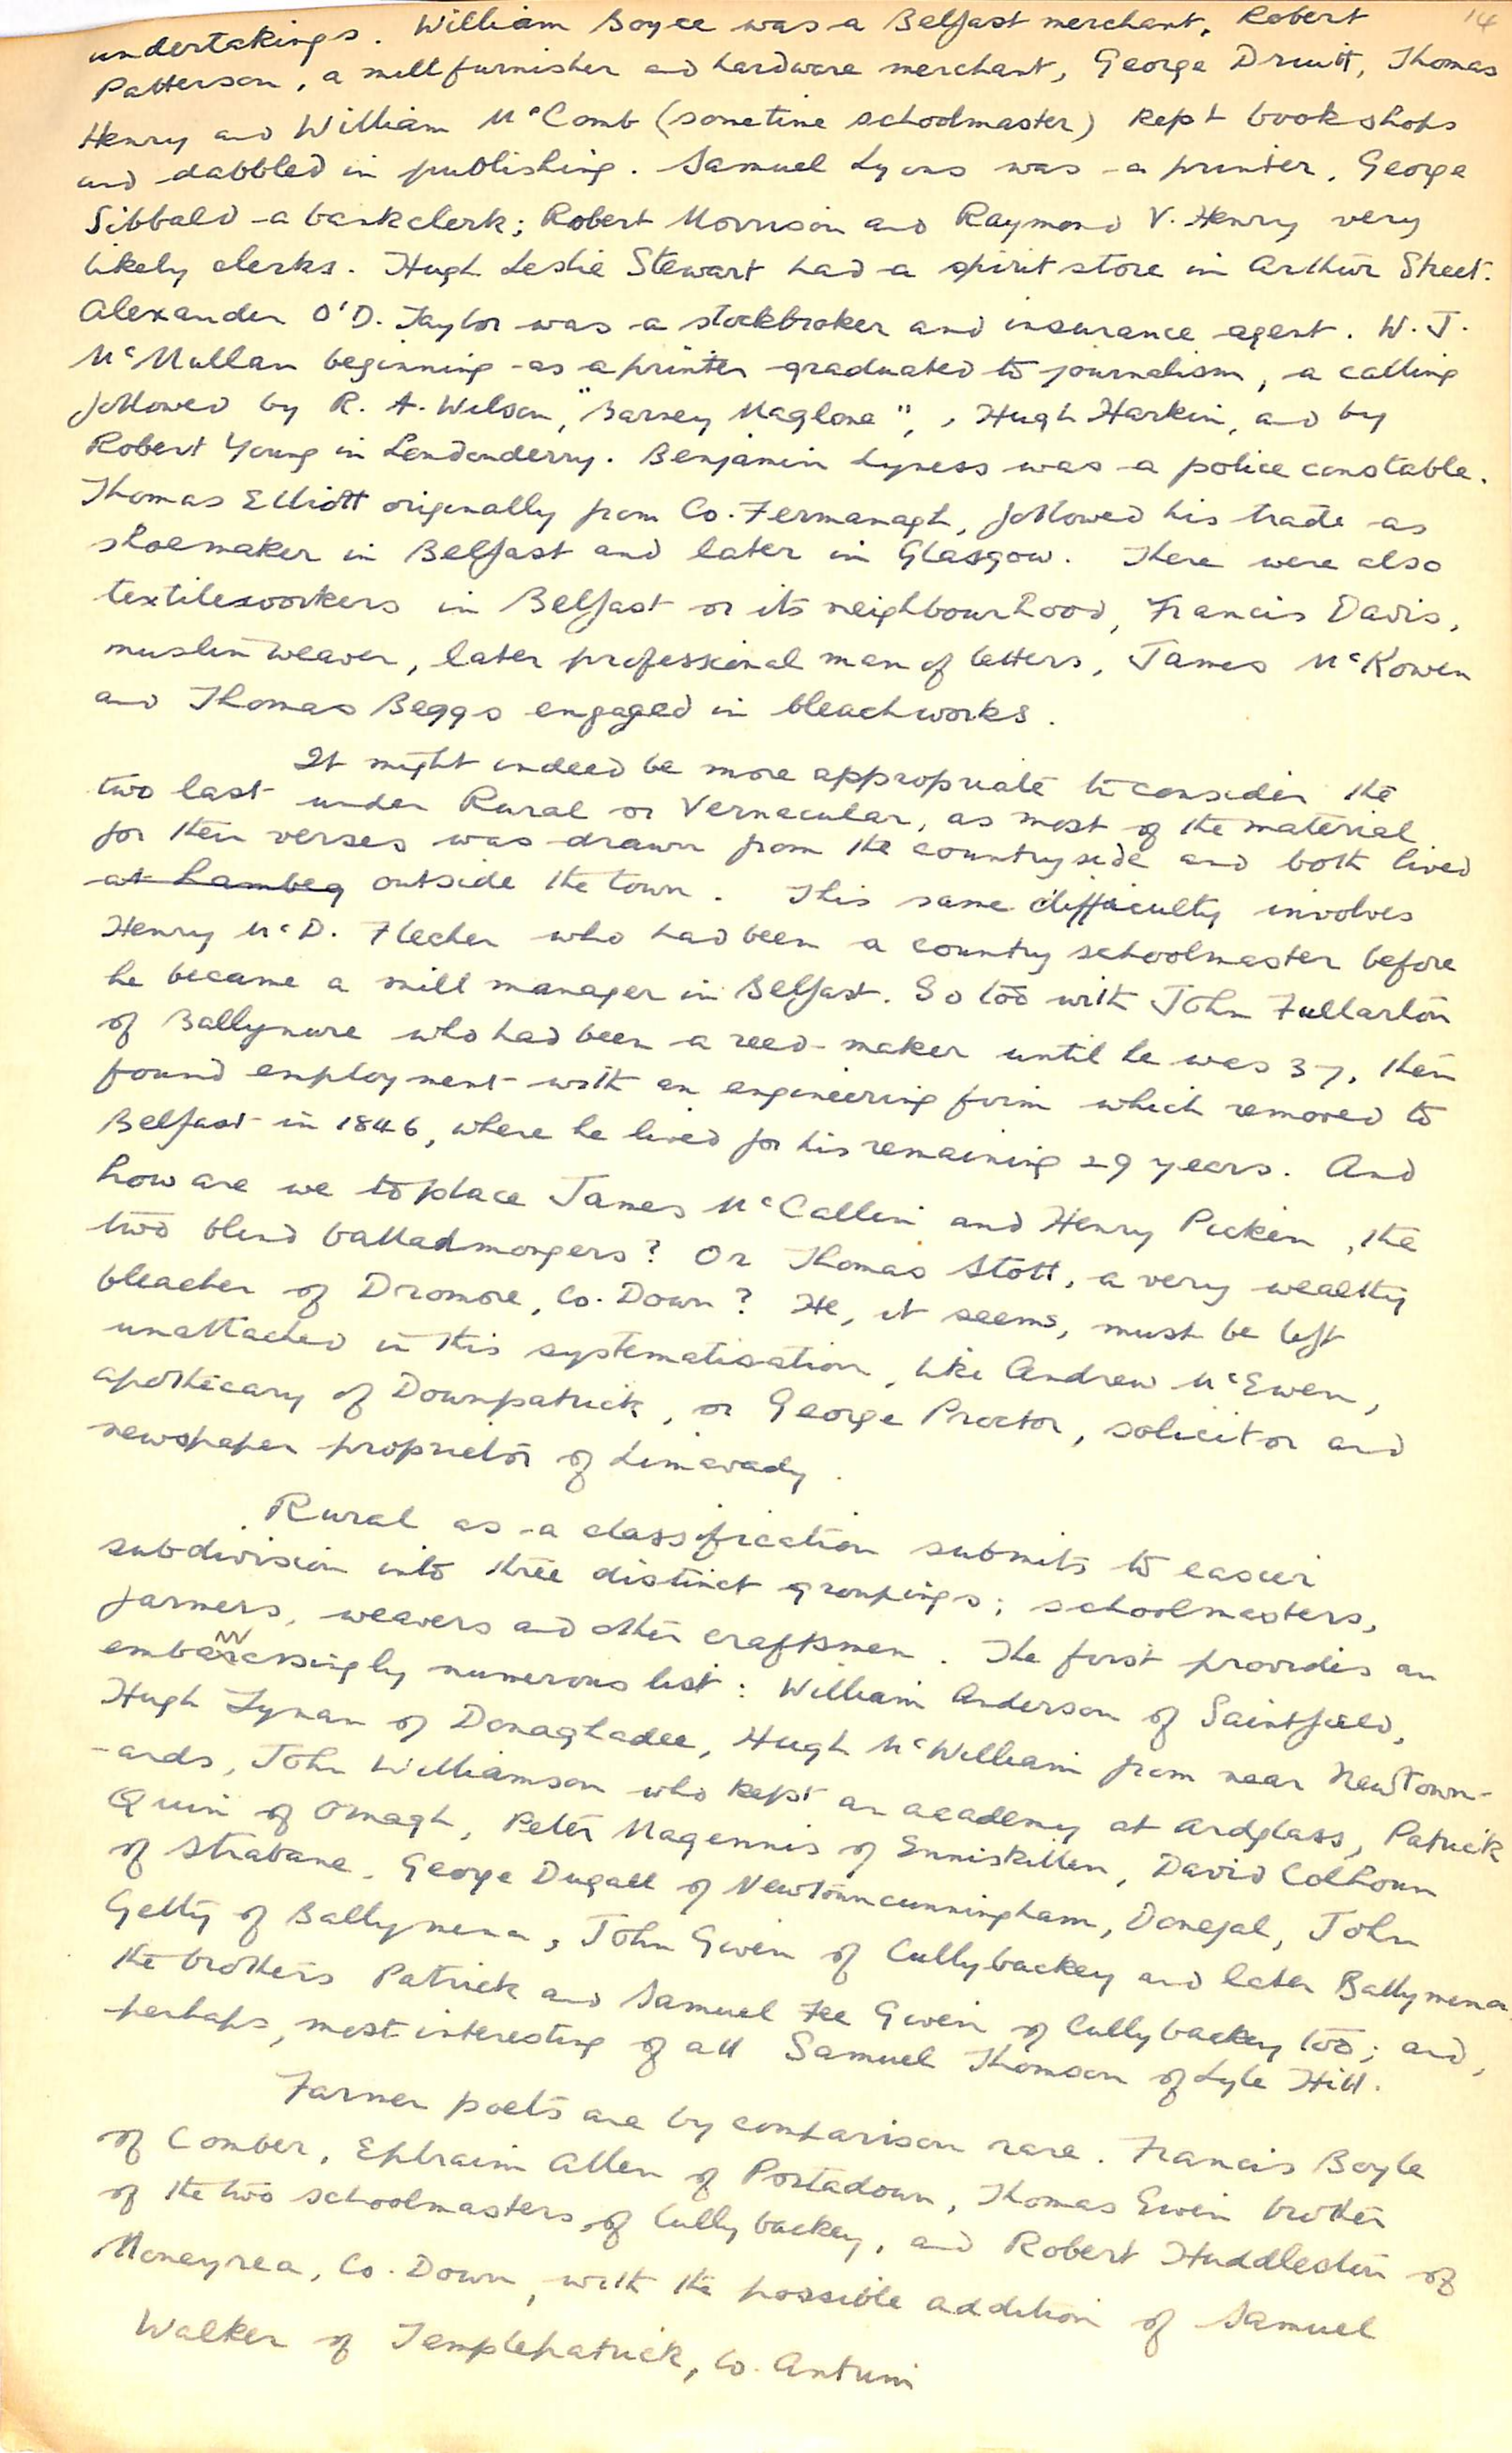 14
undertakings. William Boyce was a Belfast merchant, Robert
Patterson, a millfurnisher and hardware merchant, George Druitt, Thomas
Henry and William McComb (sometime schoolmaster) kept bookshops
and dabbled in publishing. Samuel Lyons was a printer, George
Sibbald a bankclerk; Robert Morrison and Raymond V. Henry very
likely clerks. Hugh Leslie Stewart had a spirit store in Arthur Street.
Alexander O'D. Taylor was a stockbroker and insurance agent. W. J.
McMullan beginning as a printer graduated to journalism, a calling
followed by R. A. Wilson, "Barney Maglone", Hugh Harkin, and by
Robert Young in Londonderry. Benjamin Lyness was a police constable.
Thomas Elliott originally from Co. Fermanagh, followed his trade as
shoemaker in Belfast and later in Glasgow. There were also
textileworkers in Belfast or its neighbourhood, Francis Davis,
muslin weaver, later professional man of letters, James McKowen
and Thomas Beggs engaged in bleachworks.
It might indeed be more appropriate to consider the
two last under Rural or Vernacular, as most of the material
for their verses was drawn from the countryside and both lived
at Lambeg outside the town. This same difficulty involves
Henry McD. Flecher who had been a country schoolmaster before
he became a mill manager in Belfast. So too with John Fullarton
of Ballynure who had been a reed-maker until he was 37, then
found employment with an engineering firm which removed to
Belfast in 1846, where he lived for his remaining 29 years. And
how are we to place James McCallin and Henry Picken, the
two blind balladmongers? Or Thomas Stott, a very wealthy
bleacher of Dromore, Co. Down? He, it seems, must be left
unattached in this systematisation, like Andrew McEwen,
apothecary of Downpatrick, or George Proctor, solicitor and
newspaper proprietor of Limavady.
Rural as a classification submits to easier
subdivision into three distinct groupings; schoolmasters,
farmers, weavers and other craftsmen. The first provides an
embarrassingly numerous list: William Anderson of Saintfield,
Hugh Tynan of Donaghadee, Hugh McWilliam from near Newtown-
-ards, John Williamson who kept an academy at Ardglass, Patrick
Quin of Omagh, Peter Magennis of Enniskillen, David Colhoun
of Strabane, George Dugall of Newtowncunningham, Donegal, John
Getty of Ballymena, John Given of Cullybackey and later Ballymena,
the brothers Patrick and Samuel Fee Given of Cullybackey too; and,
perhaps, most interesting of all Samuel Thomson of Lyle Hill.
Farmer poets are by comparison rare. Francis Boyle
of Comber, Ephraim Allen of Portadown, Thomas Given brother
of the two schoolmasters of Cullybackey, and Robert Huddleston of
Moneyrea, Co. Down, with the possible addition of Samuel
Walker of Templepatrick, Co. Antrim